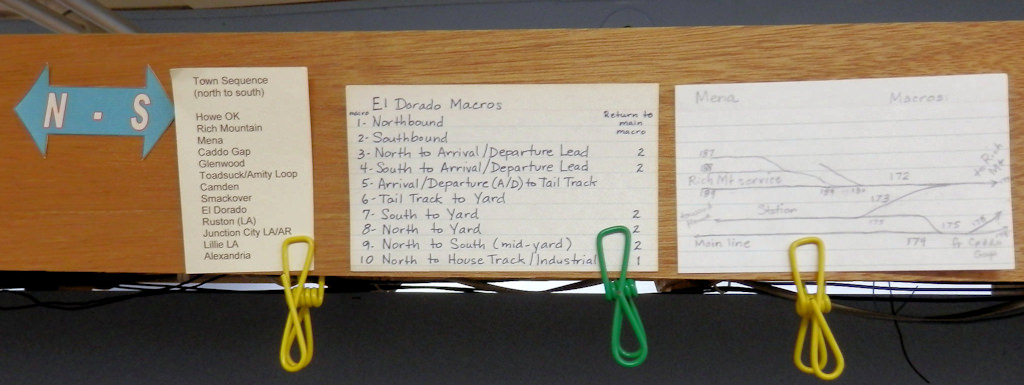 N - S
Town Sequence
(north to south)
Howe OK
Rich Mountain
Mena
Caddo Gap
Glenwood
Toadsuck/Amity Loop
Camden
Smackover
El Dorado
Ruston (LA)
Junction City LA/AR
Lillie LA
Alexandria
El Dorado Macros
macro
Return to
main
macro
1- Northbound
2- Southbound
3- North to Arrival/Departure Lead 2
4- South to Arrival/Departure Lead 2
5- Arrival/Departure (A/D) to Tail Track
6- Tail Track to Yard
7- South to Yard 2
8- North to Yard 2
9- North to South (mid-yard) 2
10 North to House Track/Industrial 1
Mena Macros:
187
Rich Mt service 172
173
Station
175
Main line 174